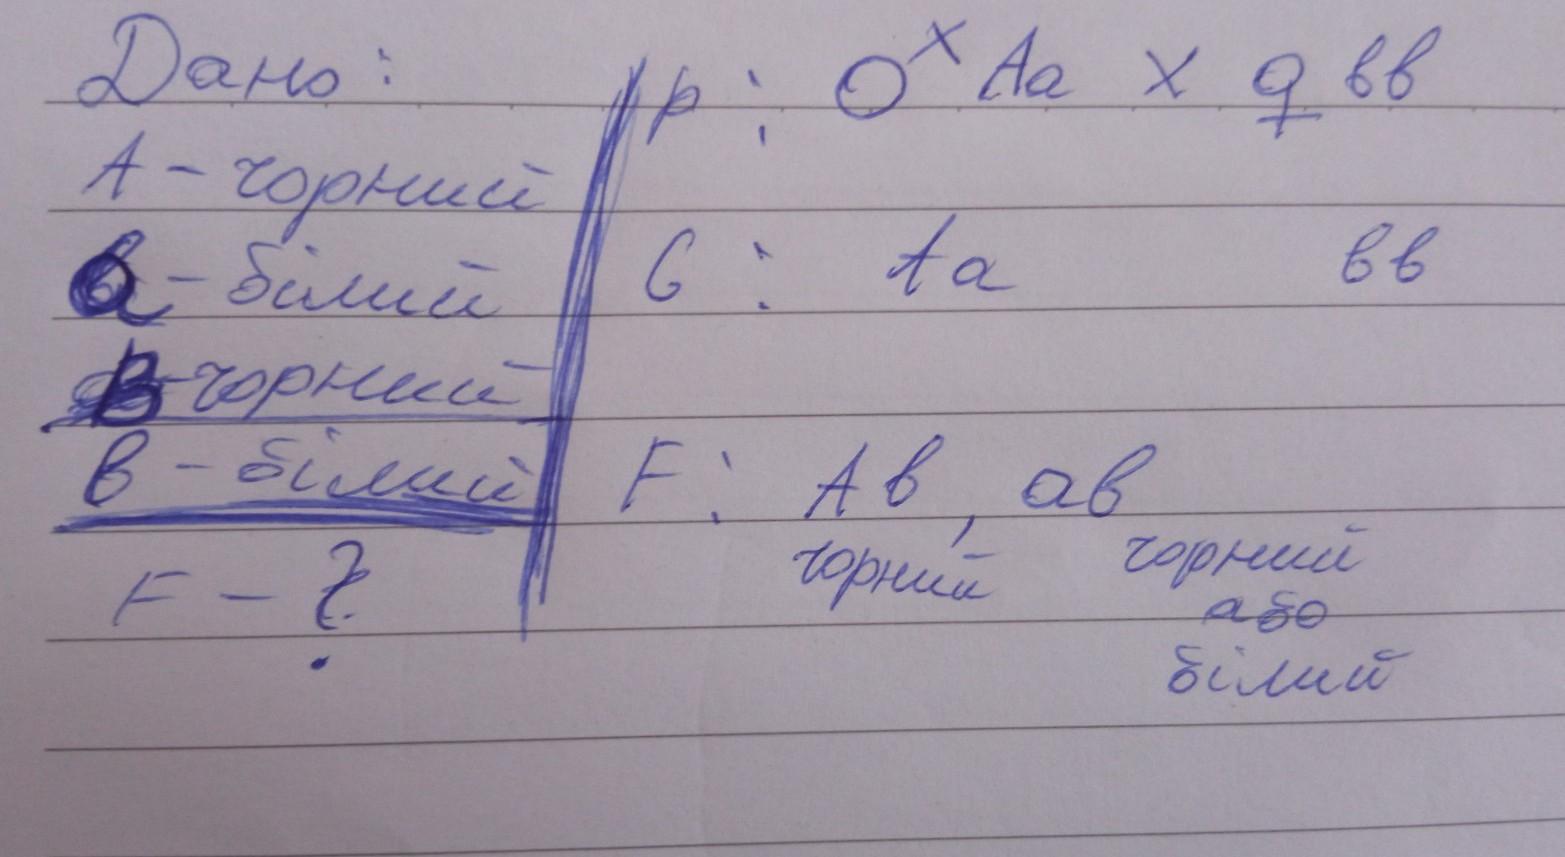 Дано:
А - чорний
а - білий
В - чорний
в - білий
F - ?
р: ♂ Аа х ♀ вв
G: Аа вв
F: Ав, ав
чорний чорний
або
білий